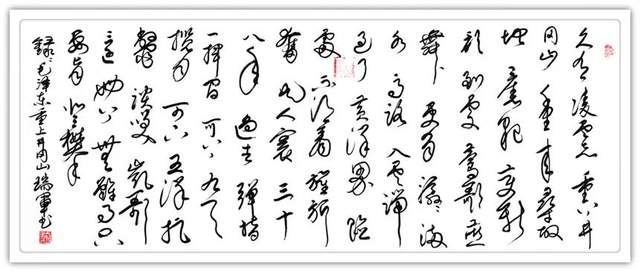 久有凌云志重上井
冈山千里来寻故
地旧貌变新
颜到处莺歌燕
舞更有潺潺流
水高路入云端
过了黄洋界险
处不须看旌旗
奋是人寰三十
八年过去弹指
一挥间可上九天
揽月可下五洋捉
鳖谈笑凯歌
还世上无难事只
要肯登攀
录毛泽东重上井冈山瑞军书